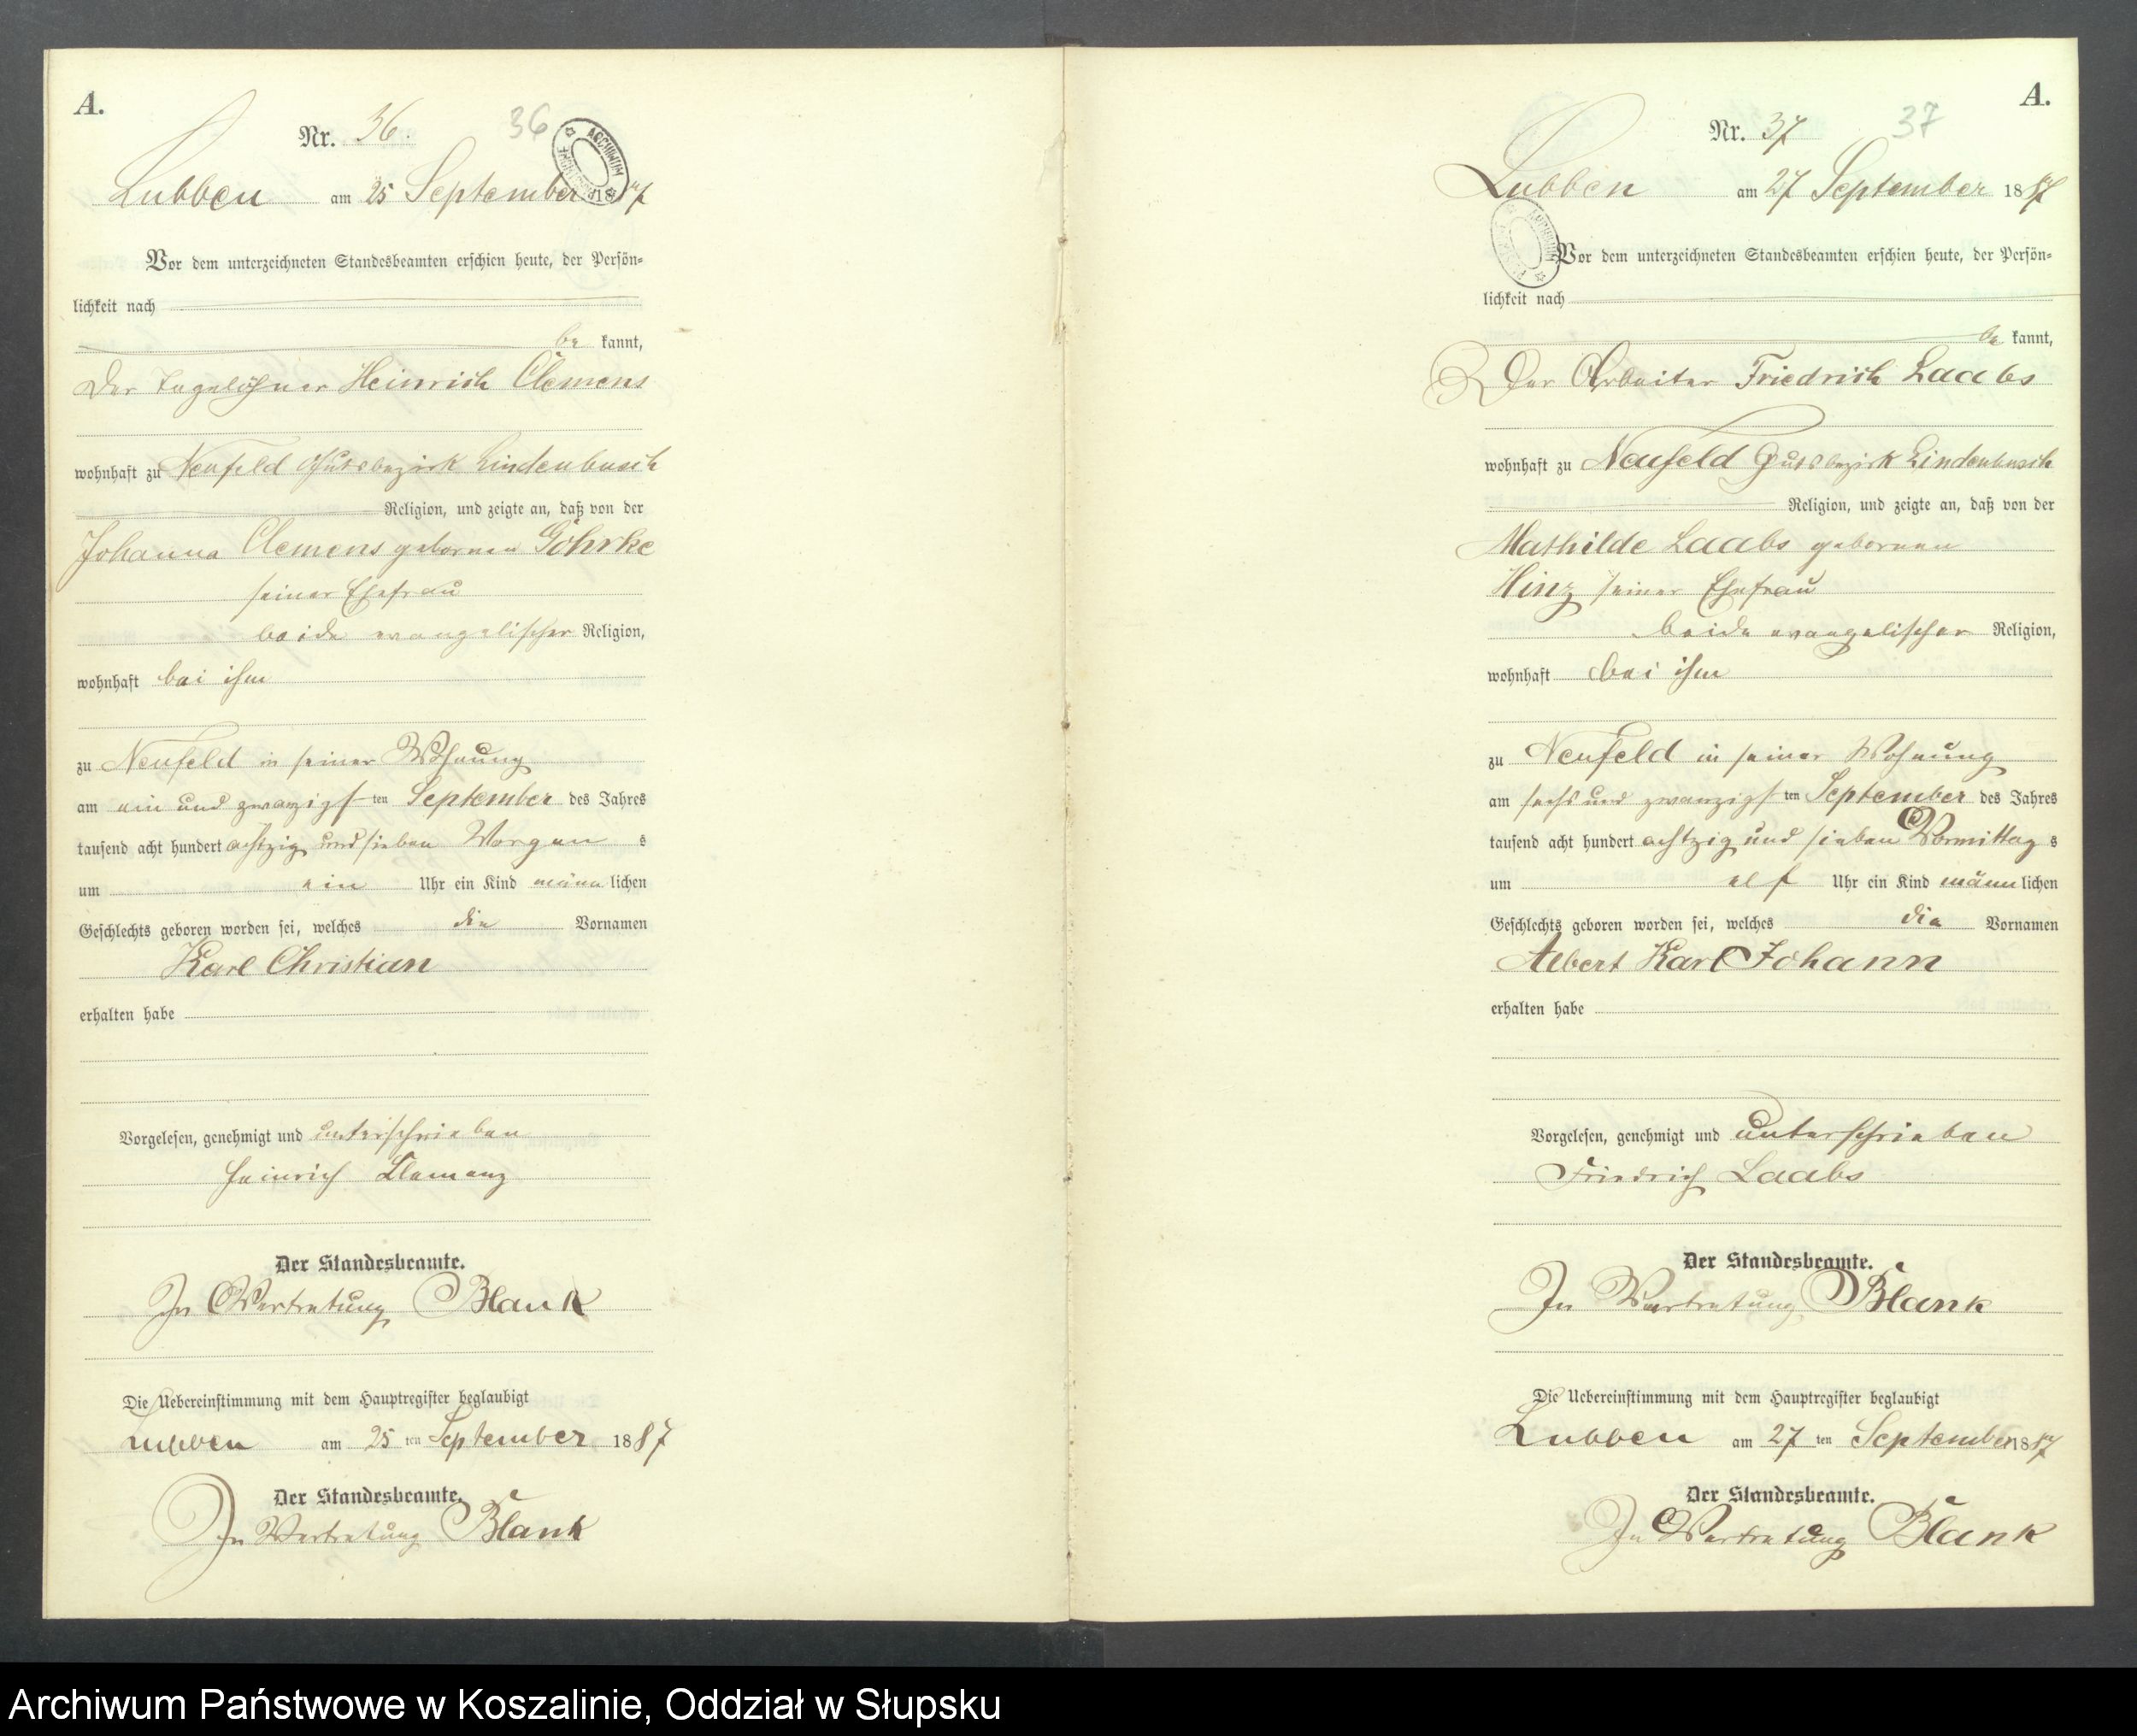 A.
Nr. 36.
36
Lubben am 25 September 1887
Vor dem unterzeichneten Standesbeamten erschien heute, der Persön-
lichkeit nach
be kannt,
Der Tagelöhner Heinrich Clemens
wohnhaft zu Neufeld Gutsbezirk Lindenbusch
Religion, und zeigte an, daß von der
Johanna Clemens geborenen Göhrke
seiner Ehefrau
beide evangelischer Religion,
wohnhaft bei ihm
zu Neufeld in seiner Wohnung
am ein und zwanzigsten September des Jahres
tausend acht hundert achtzig und sieben Morgens
um ein Uhr ein Kind männlichen
Geschlechts geboren worden sei, welches die Vornamen
Karl Christian
erhalten habe
Vorgelesen, genehmigt und unterschrieben
Heinrich Klemenz
Der Standesbeamte.
In Vertretung Blank
Die Uebereinstimmung mit dem Hauptregister beglaubigt
Lubben am 25 ten September 1887
Der Standesbeamte.
In Vertretung Blank
A.
Nr. 37
37
Lubben am 27 September 1887
Vor dem unterzeichneten Standesbeamten erschien heute, der Persön-
lichkeit nach
be kannt,
Der Arbeiter Friedrich Laabs
wohnhaft zu Neufeld Gutsbezirk Lindenbusch
Religion, und zeigte an, daß von der
Mathilde Laabs geborenen
Hinz seiner Ehefrau
beide evangelischer Religion,
wohnhaft bei ihm
zu Neufeld in seiner Wohnung
am sechs und zwanzigsten September des Jahres
tausend acht hundert achtzig und sieben Vormittags
um elf Uhr ein Kind männlichen
Geschlechts geboren worden sei, welches die Vornamen
Albert Karl Johann
erhalten habe
Vorgelesen, genehmigt und unterschrieben
Friedrich Laabs
Der Standesbeamte.
In Vertretung Blank
Die Uebereinstimmung mit dem Hauptregister beglaubigt
Lubben am 27 ten September 1887
Der Standesbeamte.
In Vertretung Blank
Archiwum Państwowe w Koszalinie, Oddział w Słupsku